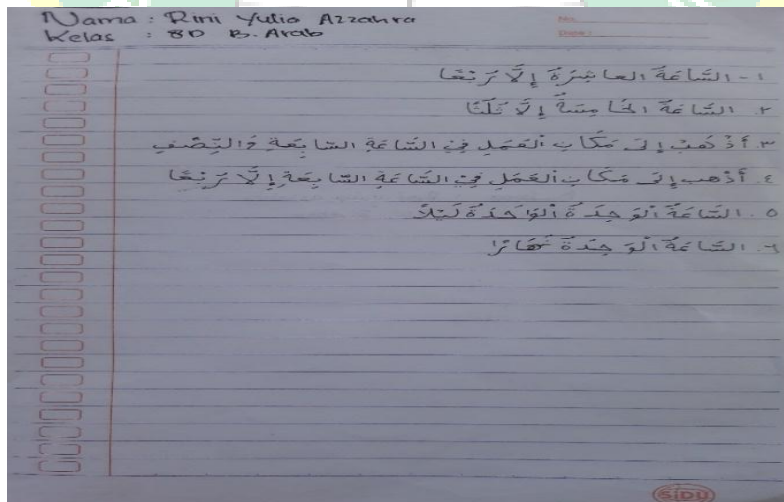 Nama : Rini Yulia Azzahra
Kelas : 8D B. Arab
No.
Date :
١- السَّاعَةُ العاشِرَةُ إِلَّا رَبْعًا
٢. السَّاعَةُ الخَامِسَةُ إِلَّا ثُلُثًا
٣. أَذْهَبُ إِلَى مَكَانِ العَمَلِ فِي السَّاعَةِ السَّابِعَةِ وَالنِّصْفِ
٤. أَذْهَب إِلَى مَكَانِ العَمَلِ فِي السَّاعَةِ السَّابِعَةِ إِلَّا رَبْعًا
٥. السَّاعَةُ الْوَحِدَةُ الْوَاحِدَةُ لَيْلًا
٦. السَّاعَةُ الْوَحِدَةُ نَهَارًا
SIDU